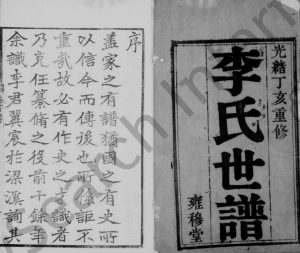 光緒丁亥重修
李氏世譜
雍穆堂
序
蓋家之有譜猶國之有史所
以信今而傳後也所係詎不
重哉故必有作史之才識者
乃克任纂脩之役前十餘年
余識李君翼宸於梁溪詢其